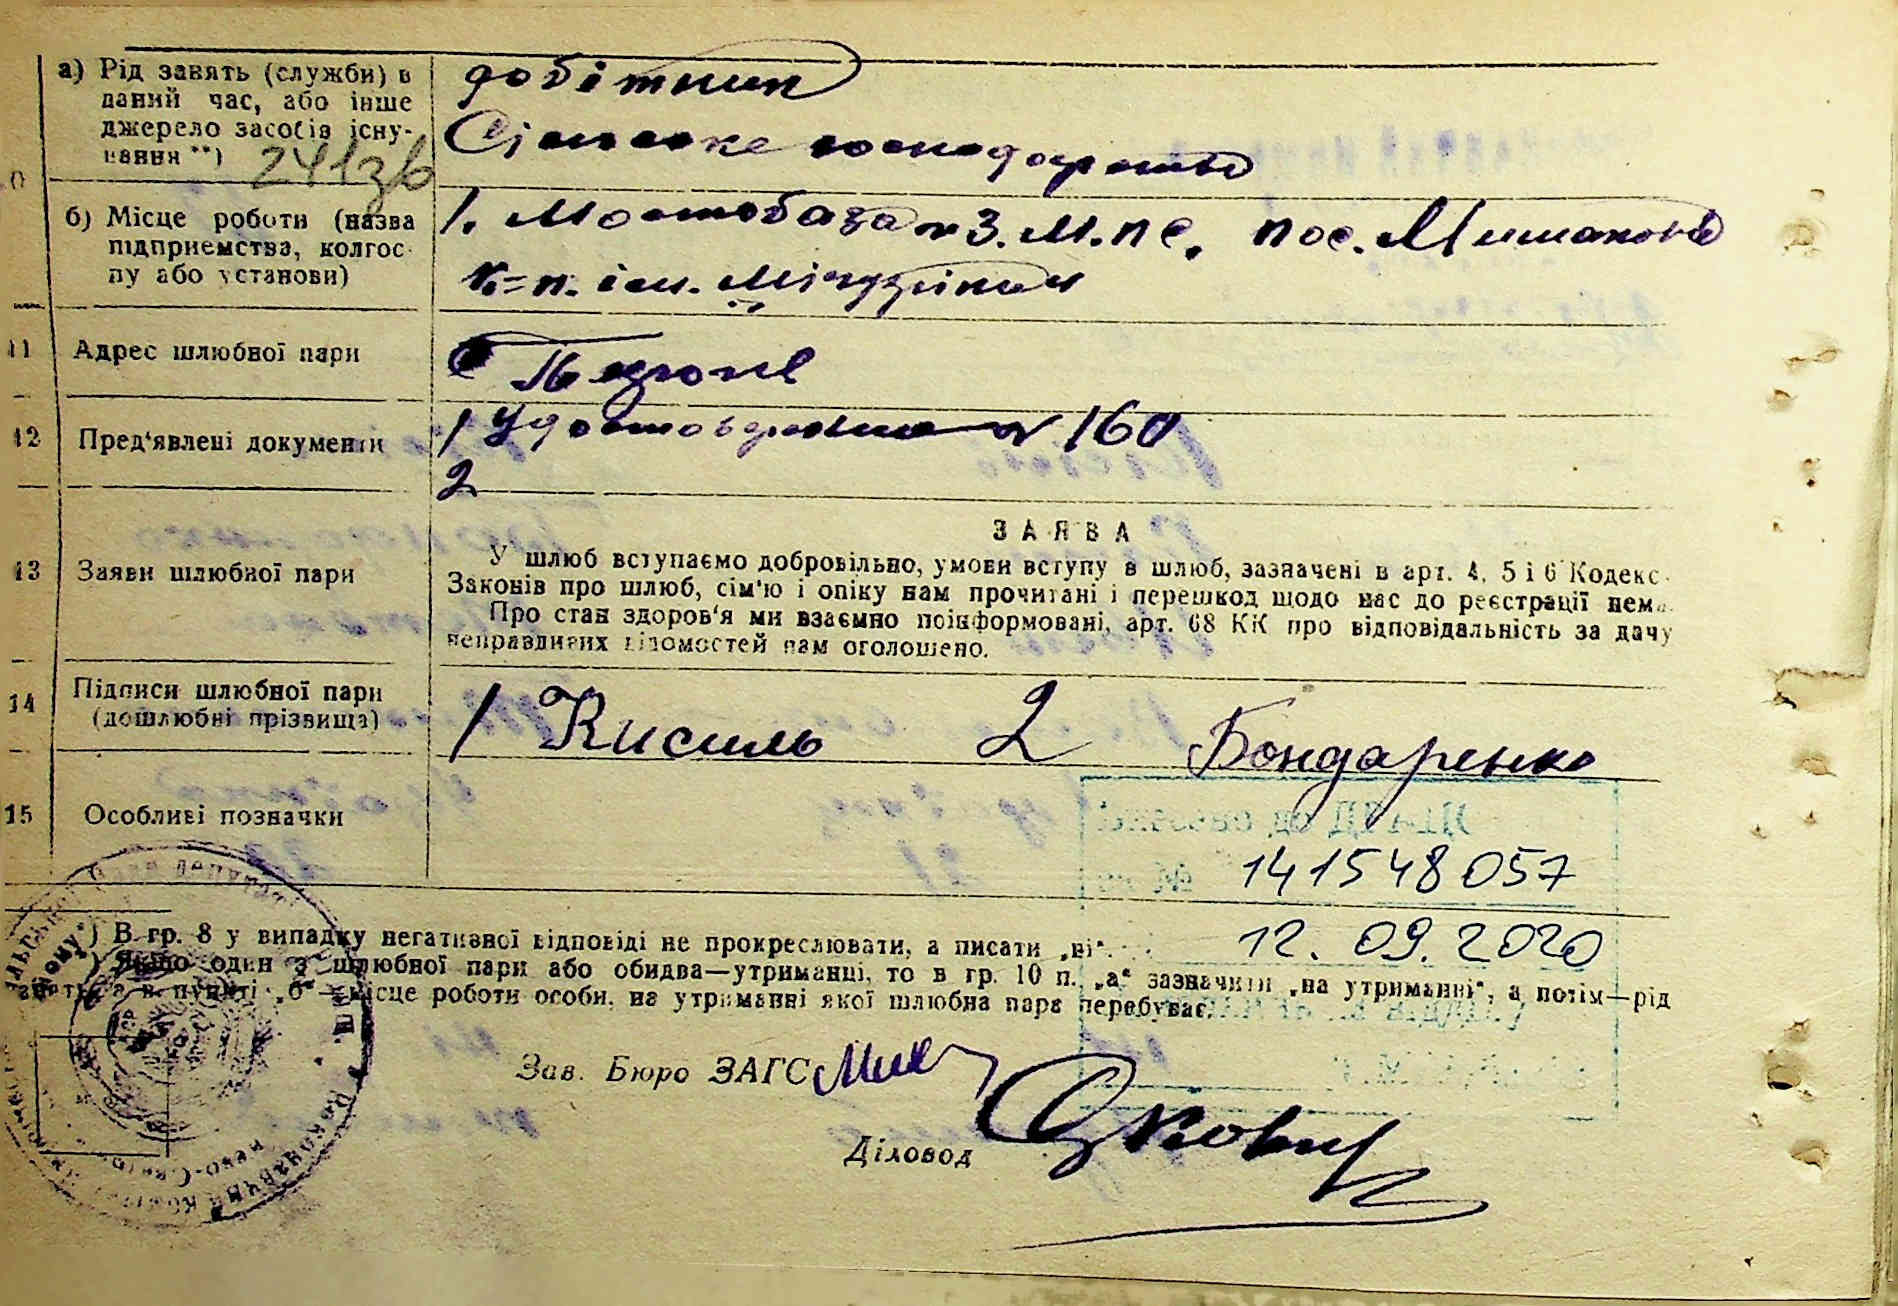 а) Рід занять (служби) в
даний час, або інше
джерело засобів існу-
вання **)
робітник
Сільське господарство
б) Місце роботи (назва
підприємства, колгос-
пу або установи)
1. Мостобаза № 3. М.П С, пос.
к-п. ім. Мічуріна
11 Адрес шлюбної пари
12 Пред'явлені документи
1 Удостоверение № 160
2
13 Заяви шлюбної пари
ЗАЯВА
У шлюб вступаємо добровільно, умови вступу в шлюб, зазначені в арт. 4, 5 і 6 Кодекс
Законів про шлюб, сім'ю і опіку нам прочитані і перешкод щодо нас до реєстрації нема
Про стан здоров'я ми взаємно поінформовані, арт. 68 КК про відповідальність за дачу
неправдивих відомостей нам оголошено.
14 Підписи шлюбної пари
(дошлюбні прізвища)
1 Кисиль 2 Бондаренко
15 Особливі позначки
141548057
12.09.2020
) В гр. 8 у випадку негативної відповіді не прокреслювати, а писати „ні“.
) Якщо один з шлюбної пари або обидва—утриманці, то в гр. 10 п. „а“ зазначити „на утриманні“, а потім—рід
занять, а в пункті „б“—місце роботи особи, на утриманні якої шлюбна пара перебуває.
Зав. Бюро ЗАГС
Діловод